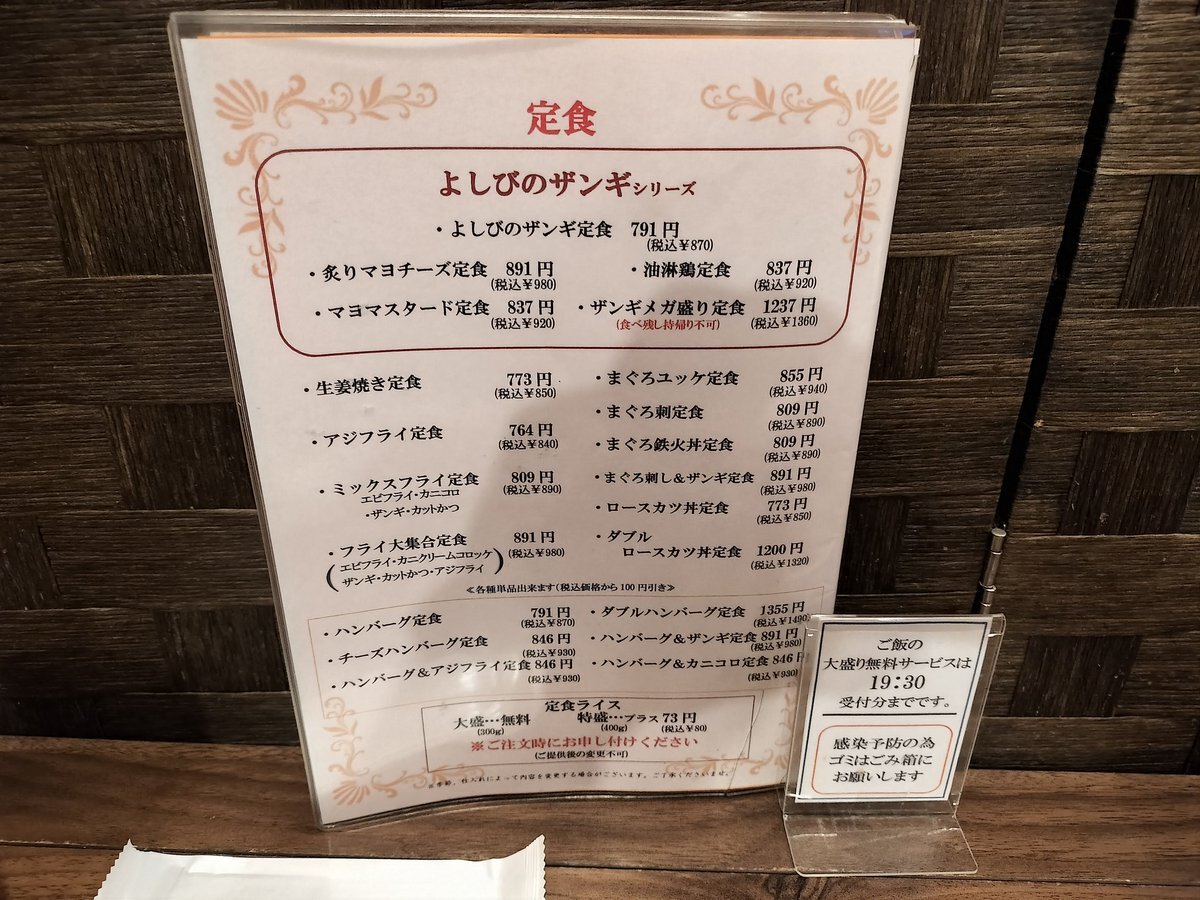 定食
よしびのザンギシリーズ
・よしびのザンギ定食 791円
(税込¥870)
・炙りマヨチーズ定食 891円
(税込¥980)
・油淋鶏定食 837円
(税込¥920)
・マヨマスタード定食 837円
(税込¥920)
・ザンギメガ盛り定食 1237円
(食べ残し持帰り不可) (税込¥1360)
・生姜焼き定食 773円
(税込¥850)
・アジフライ定食 764円
(税込¥840)
・ミックスフライ定食 809円
エビフライ・カニコロ (税込¥890)
・ザンギ・カットかつ
・フライ大集合定食 891円
(エビフライ・カニクリームコロッケ (税込¥980)
ザンギ・カットかつ・アジフライ)
・まぐろユッケ定食 855円
(税込¥940)
・まぐろ刺定食 809円
(税込¥890)
・まぐろ鉄火丼定食 809円
(税込¥890)
・まぐろ刺し&ザンギ定食 891円
(税込¥980)
・ロースカツ丼定食 773円
(税込¥850)
・ダブル
ロースカツ丼定食 1200円
(税込¥1320)
≪各種単品出来ます(税込価格から100円引き≫
・ハンバーグ定食 791円
(税込¥870)
・チーズハンバーグ定食 846円
(税込¥930)
・ハンバーグ&アジフライ定食 846円
(税込¥930)
・ダブルハンバーグ定食 1355円
(税込¥1490)
・ハンバーグ&ザンギ定食 891円
(税込¥980)
・ハンバーグ&カニコロ定食 846円
(税込¥930)
定食ライス
大盛…無料 特盛…プラス73円
(300g) (400g) (税込¥80)
※ご注文時にお申し付けください
(ご提供後の変更不可)
※季節、仕入れによって内容を変更する場合がございます。ご了承くださいませ。
ご飯の
大盛り無料サービスは
19:30
受付分までです。
感染予防の為
ゴミはごみ箱に
お願いします